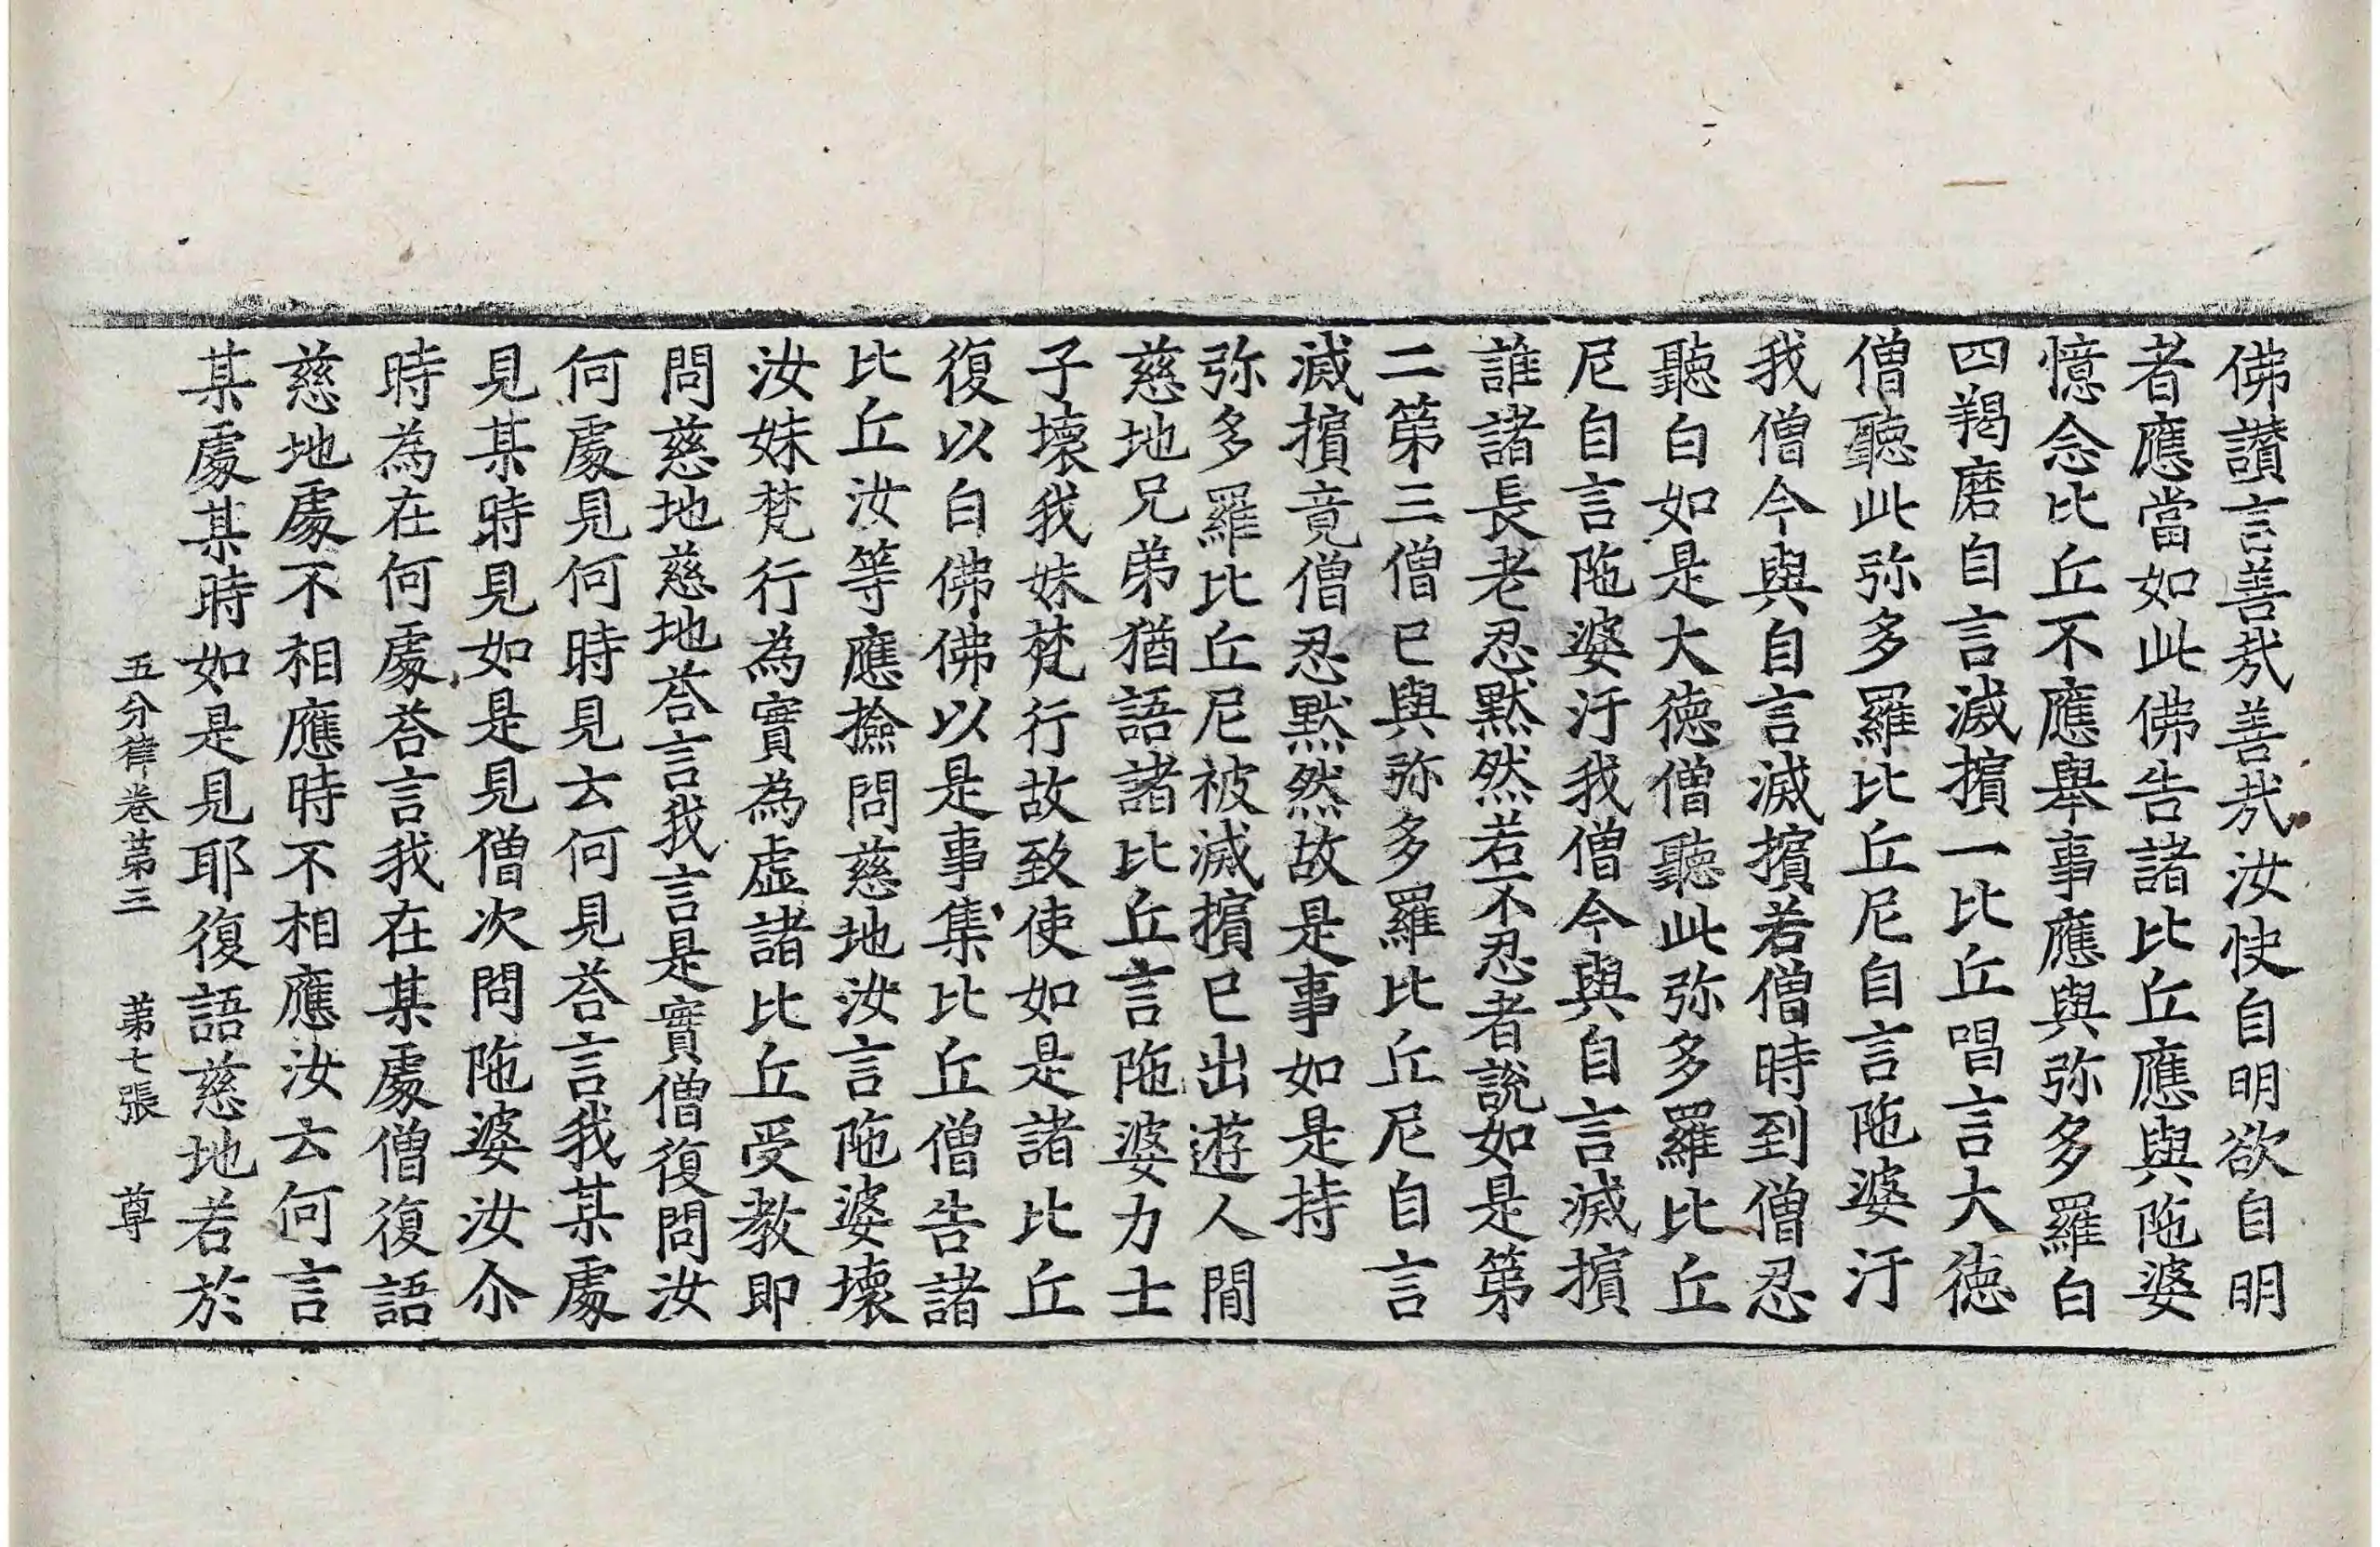 佛讃言善㢤善㢤汝快自明欲自明
者應當如此佛告諸比丘應與陁婆
憶念比丘不應舉事應與弥多羅白
四羯磨自言滅擯一比丘唱言大德
僧聽此弥多羅比丘尼自言陁婆汙
我僧今與自言滅擯若僧時到僧忍
聽白如是大德僧聽此弥多羅比丘
尼自言陁婆汙我僧今與自言滅擯
誰諸長老忍默然若不忍者說如是第
二第三僧已與弥多羅比丘尼自言
滅擯竟僧忍默然故是事如是持
弥多羅比丘尼被滅擯已出遊人間
慈地兄弟猶語諸比丘言陁婆力士
子壞我妹梵行故致使如是諸比丘
復以白佛佛以是事集比丘僧告諸
比丘汝等應撿問慈地汝言陁婆壞
汝妹梵行為實為虛諸比丘受教即
問慈地慈地荅言我言是實僧復問汝
何處見何時見云何見荅言我某處
見某時見如是見僧次問陁婆汝尒
時為在何處荅言我在某處僧復語
慈地處不相應時不相應汝云何言
某處某時如是見耶復語慈地若於
五分律卷第三 第七張 尊